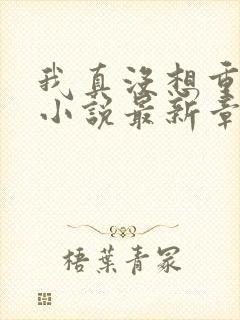 我真没想重
小说最新章
梧葉青冢